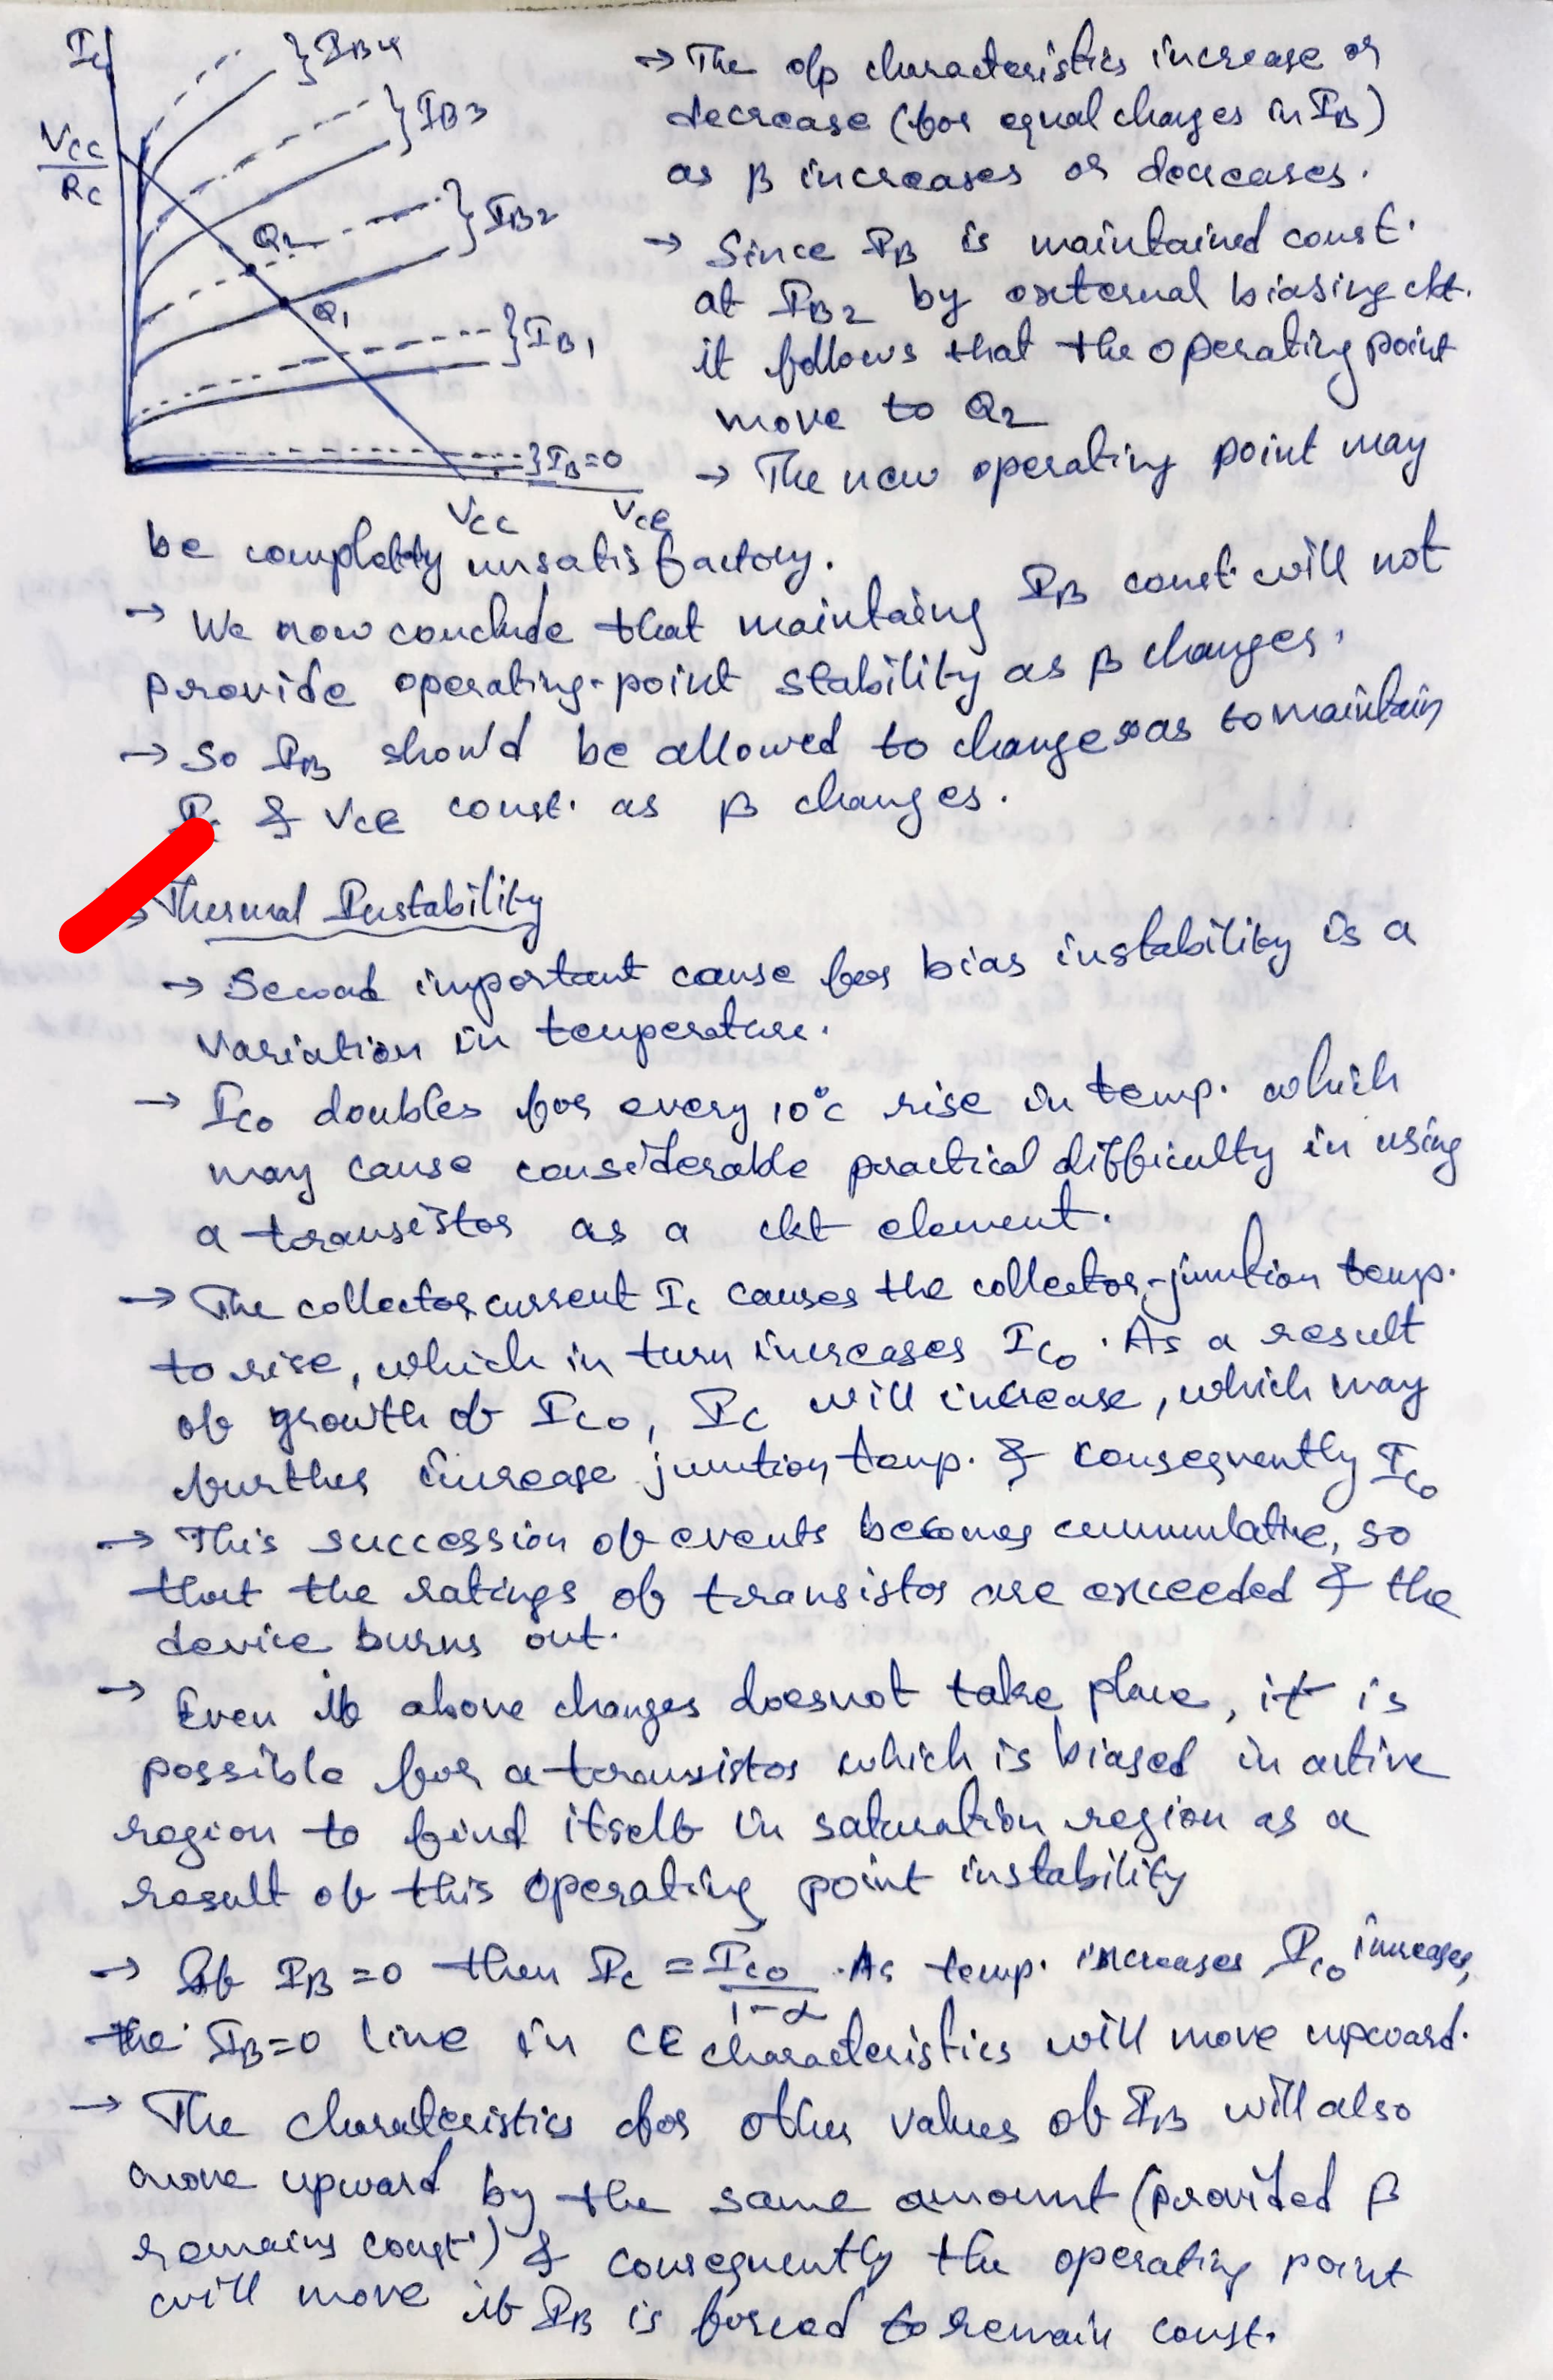 Ic
} IB4
} IB3
VCC
RC
} IB2
Q2
Q1
} IB1
} IB=0
VCC
VCE
→ The o/p characteristics increase or
decrease (for equal changes in IB)
as β increases or decreases.
→ Since IB is maintained const.
at IB2 by external biasing ckt.
it follows that the operating point
move to Q2
→ The new operating point may
be completly unsatisfactory.
→ We now conclude that maintaing IB const. will not
provide operating-point stability as β changes.
→ So IB should be allowed to change so as to maintain
& VCE const. as β changes.
Thermal Instability
→ Second important cause for bias instability is a
variation in temperature.
→ ICO doubles for every 10°C rise in temp. which
may cause considerable practical difficulty in using
a transistor as a ckt element.
→ The collector current Ic causes the collector-junction temp.
to rise, which in turn increases ICO. As a result
of growth of ICO, IC will increase, which may
further increase junction temp. & consequently ICO
→ This succession of events becomes cummulative, so
that the ratings of transistor are exceeded & the
device burns out.
→ Even if above changes doesnot take place, it is
possible for a transistor which is biased in active
region to find itself in saturation region as a
result of this operating point instability
→ If IB=0 then Ic = ICO/1-α. As temp. increases ICO increases,
the IB=0 line in CE characteristics will move upward.
→ The charateristics for other values of IB will also
move upward by the same amount (provided β
remains const.) & consequently the operating point
will move if IB is forced to remain const.